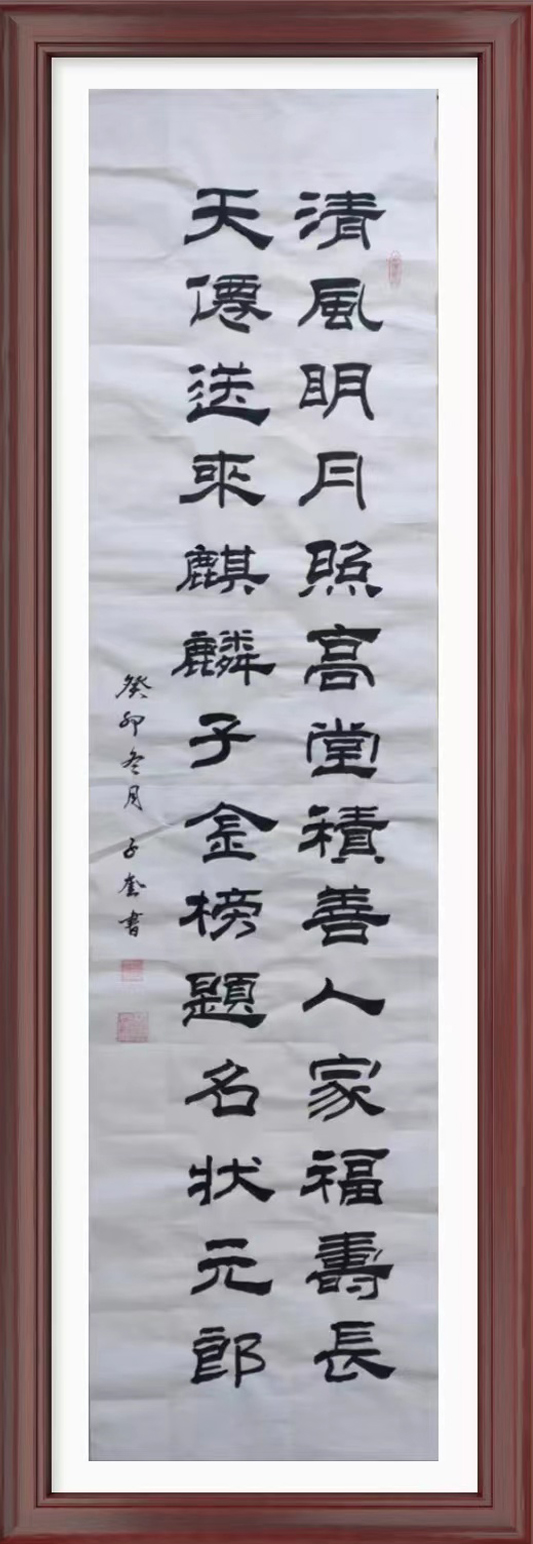 清風明月照高堂積善人家福壽長
天僊送來麒麟子金榜題名狀元郎
癸卯冬月 子奎書